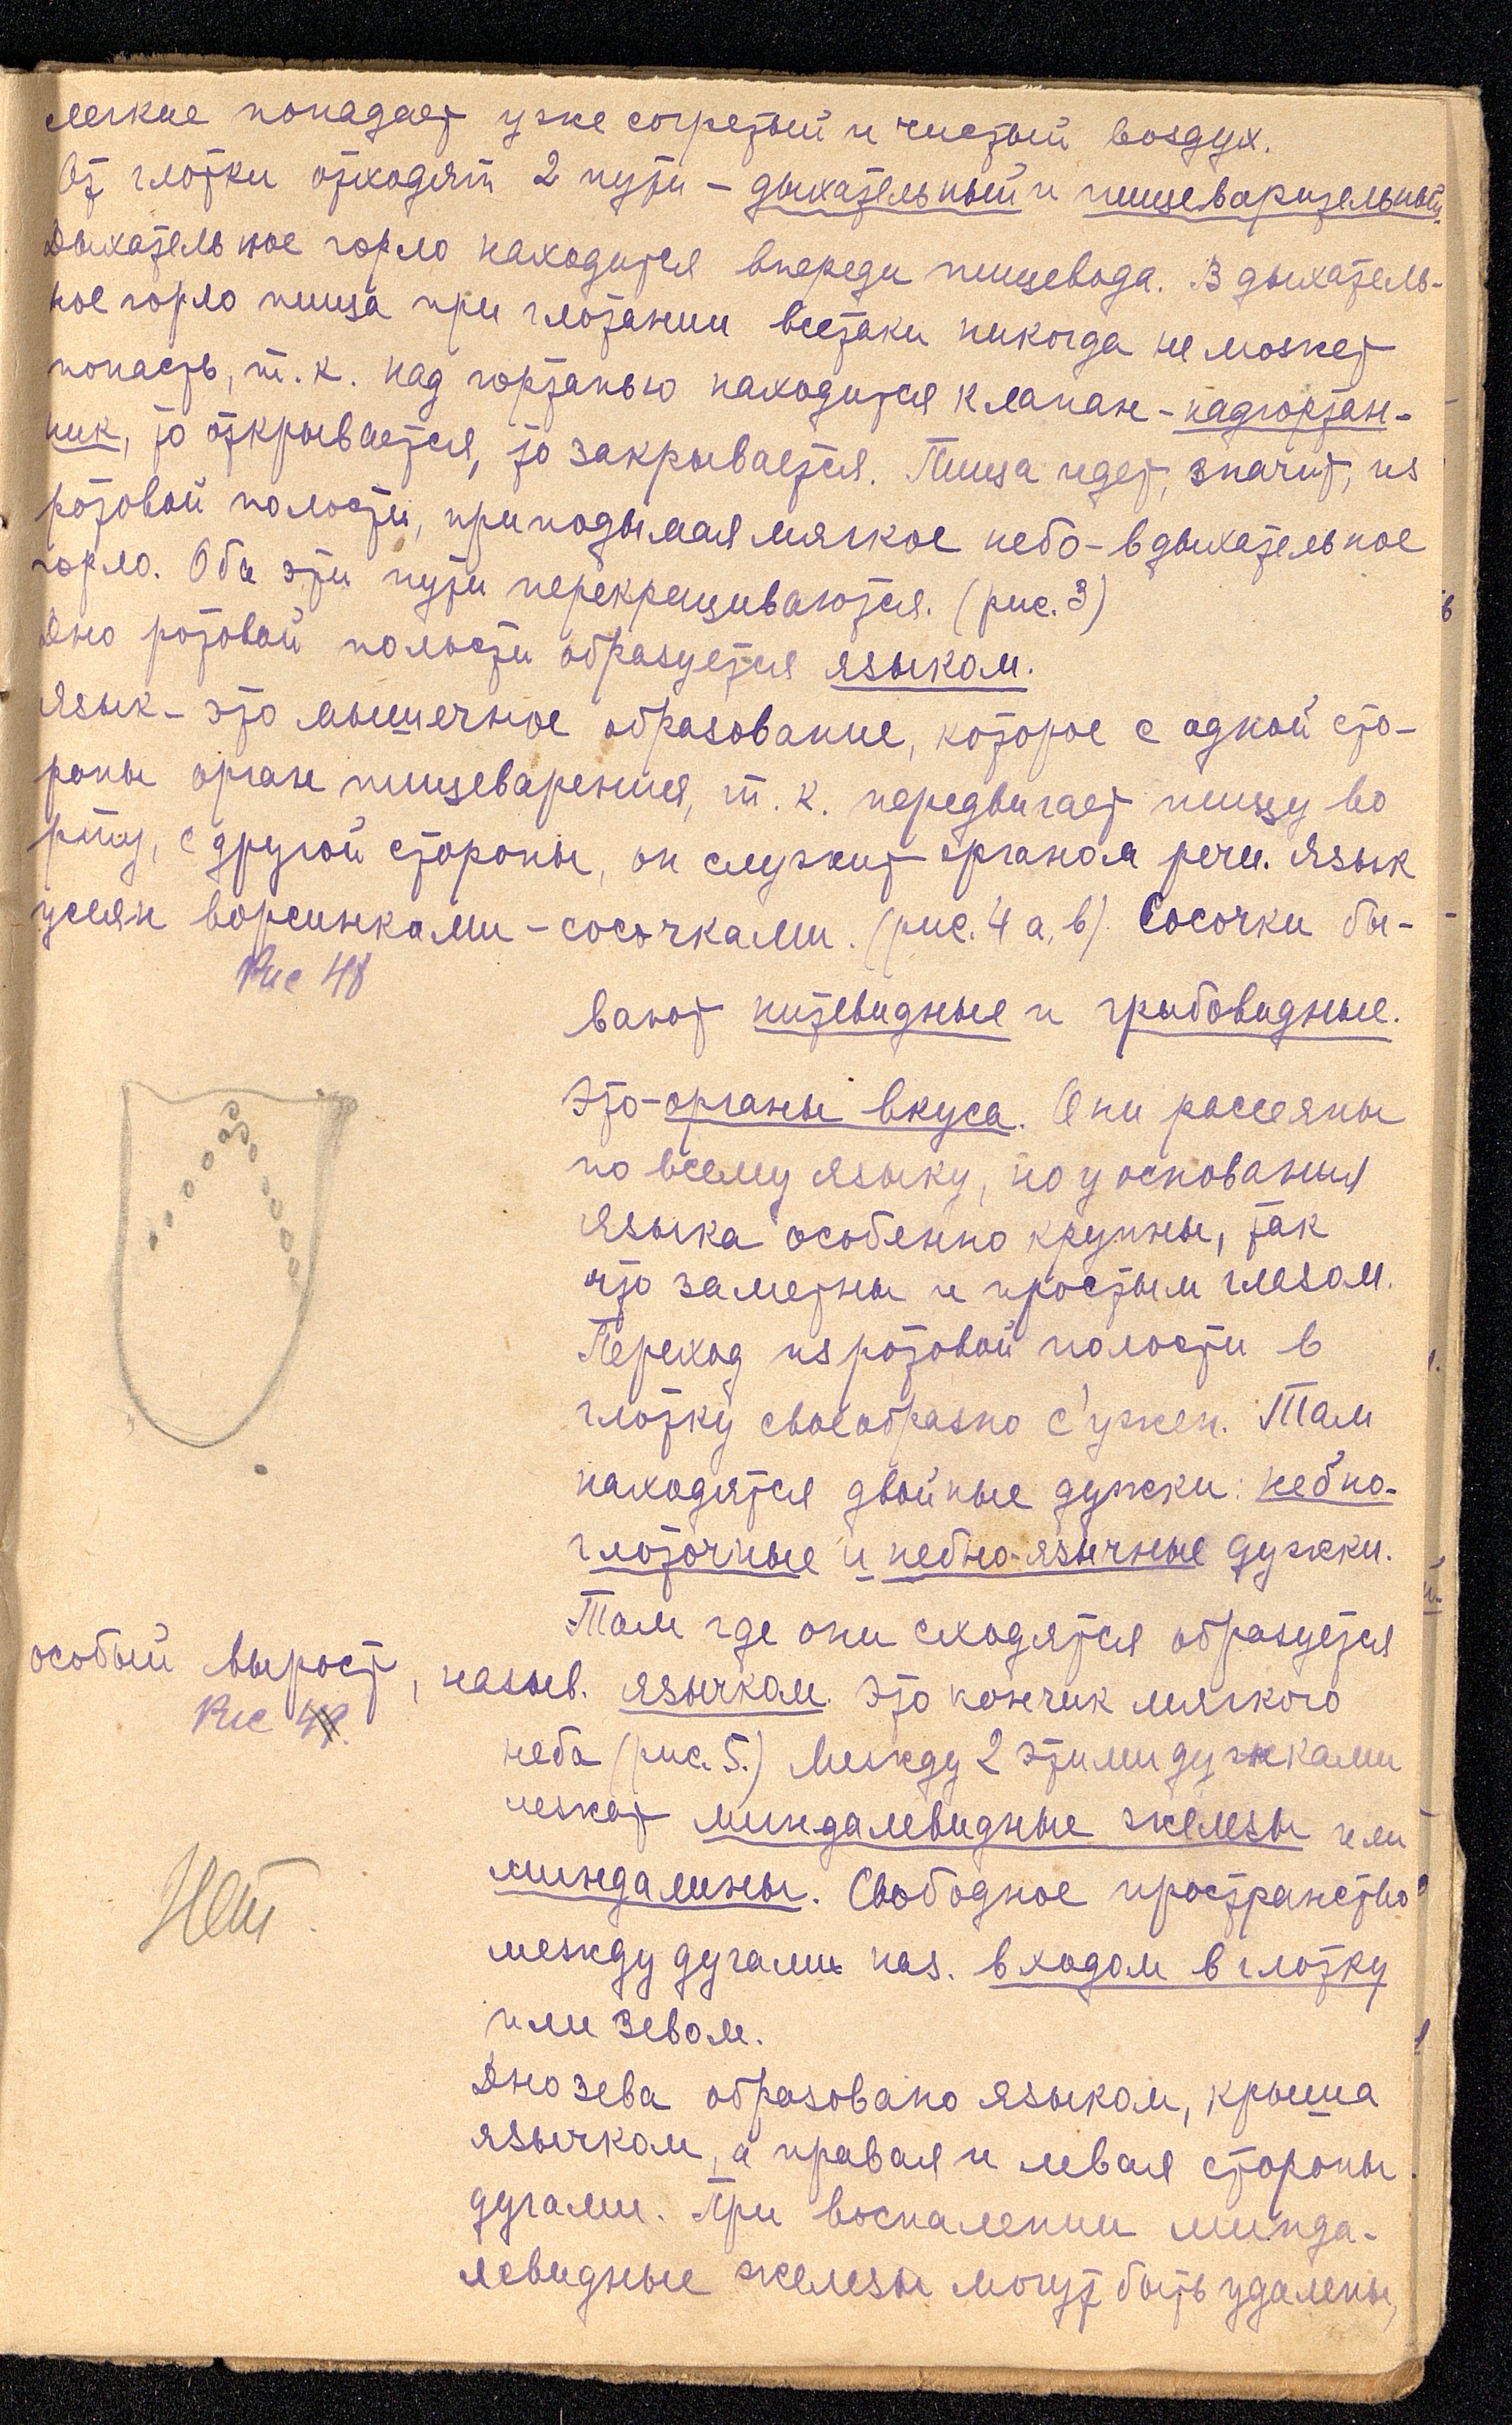 легкие попадает уже согретый и чистый воздух.
От глотки отходят 2 пути – дыхательный и пищеварительный.
Дыхательное горло находится впереди пищевода. В дыхатель-
ное горло пища при глотании всетаки никогда не может
попасть, т. к. над гортанью находится клапан – надгортан-
ник, то открывается, то закрывается. Пища идет, значит, из
ротовой полости, приподымая мягкое небо – в дыхательное
горло. Обе эти пути перекрещиваются. (рис. 3)
Дно ротовой полости образуется языком.
Язык – это мышечное образование, которое с одной сто-
роны орган пищеварения, т. к. передвигает пищу во
рту, с другой стороны, он служит органом речи. Язык
усеян ворсинками – сосочками. (рис. 4 а, в). Сосочки бы-
Рис 4б
вают нитевидные и грибовидные.
Это – органы вкуса. Они рассеяны
по всему языку, но у основания
языка особенно крупны, так
что заметны и простым глазом.
Переход из ротовой полости в
глотку своеобразно с'ужен. Там
находятся двойные дужки: небно-
глоточные и небно-язычные дужки.
Там где они сходятся образуется
особый вырост, назыв. язычком. Это кончик мягкого
Рис 4
неба (рис. 5.) Между 2 этими дужками
лежат миндалевидные железы или
миндалины. Свободное пространство
между дугами наз. входом в глотку
или зевом.
Дно зева образовано языком, крыша
язычком, а правая и левая стороны
дугами. При воспалении минда-
левидные железы могут быть удалены,
Нет.